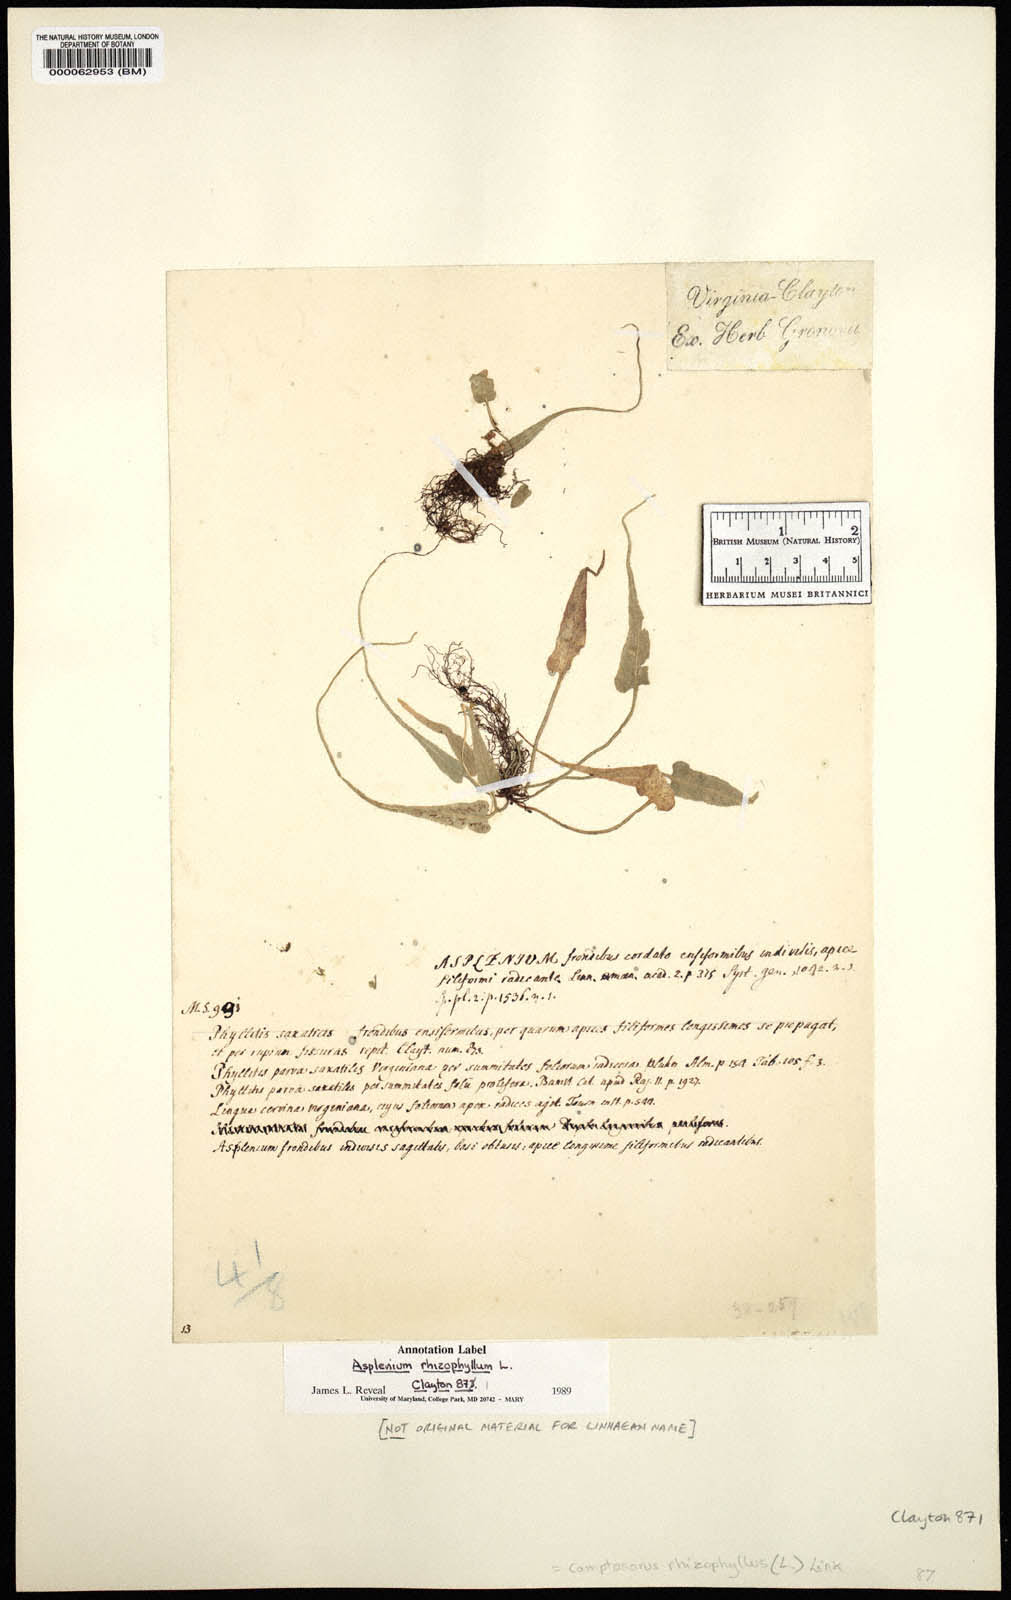 THE NATURAL HISTORY MUSEUM, LONDON
DEPARTMENT OF BOTANY
000062953 (BM)
Virginia-Clayton
Ex. Herb Gronovii
1 2
BRITISH MUSEUM (NATURAL HISTORY)
1 2 3 4 5
HERBARIUM MUSEI BRITANNICI
ASPLENIUM frondibus cordato ensiformibus indivisis, apice
filiformi radicante Linn. acad. 2. p 315 Syst. gen.
Sp. pl. 2. p. 1536. n. 1.
M.S.
Phyllitis saxatilis frondibus ensiformibus, per quarum apices filiformes longissimos se propagat,
et per rupium fissuras repit. Clayt. num.
Phyllitis parva saxatilis Virginiana per summitates foliorum radicosa Plukn Alm. p 154 Tab. 105. f. 3.
Phyllitis parva saxatilis per summitates folii prolifera. Banist Cat. apud Raj. II p. 1927.
Lingua cervina virginiana, cujus foliorum apex radices agit. Tourn inst. p. 544.
Asplenium frondibus indivisis sagittatis, basi obtusis, apice longissime filiformibus radicantibus.
4 1/8
13
Annotation Label
Asplenium rhizophyllum L.
Clayton 871
James L. Reveal 1989
University of Maryland, College Park, MD 20742 - MARY
[NOT ORIGINAL MATERIAL FOR LINNAEAN NAME]
Clayton 871
= Camptosorus rhizophyllus (L.) Link
87